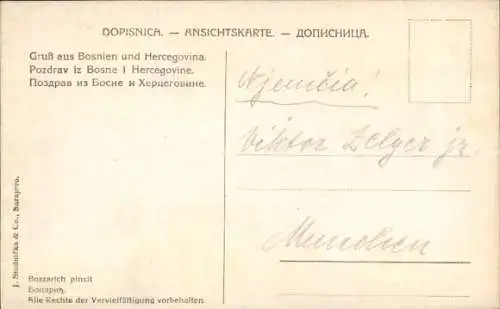 DOPISNICA. — ANSICHTSKARTE. — ДОПИСНИЦА.
Gruß aus Bosnien und Hercegovina.
Pozdrav iz Bosne i Hercegovine.
Поздрав из Босне и Херцеговине.
Njemčia!
Viktor Zelger jr.
München
J. Studnička & Co., Sarajevo.
Bozzarich pinxit
Боцарић.
Alle Rechte der Vervielfältigung vorbehalten.